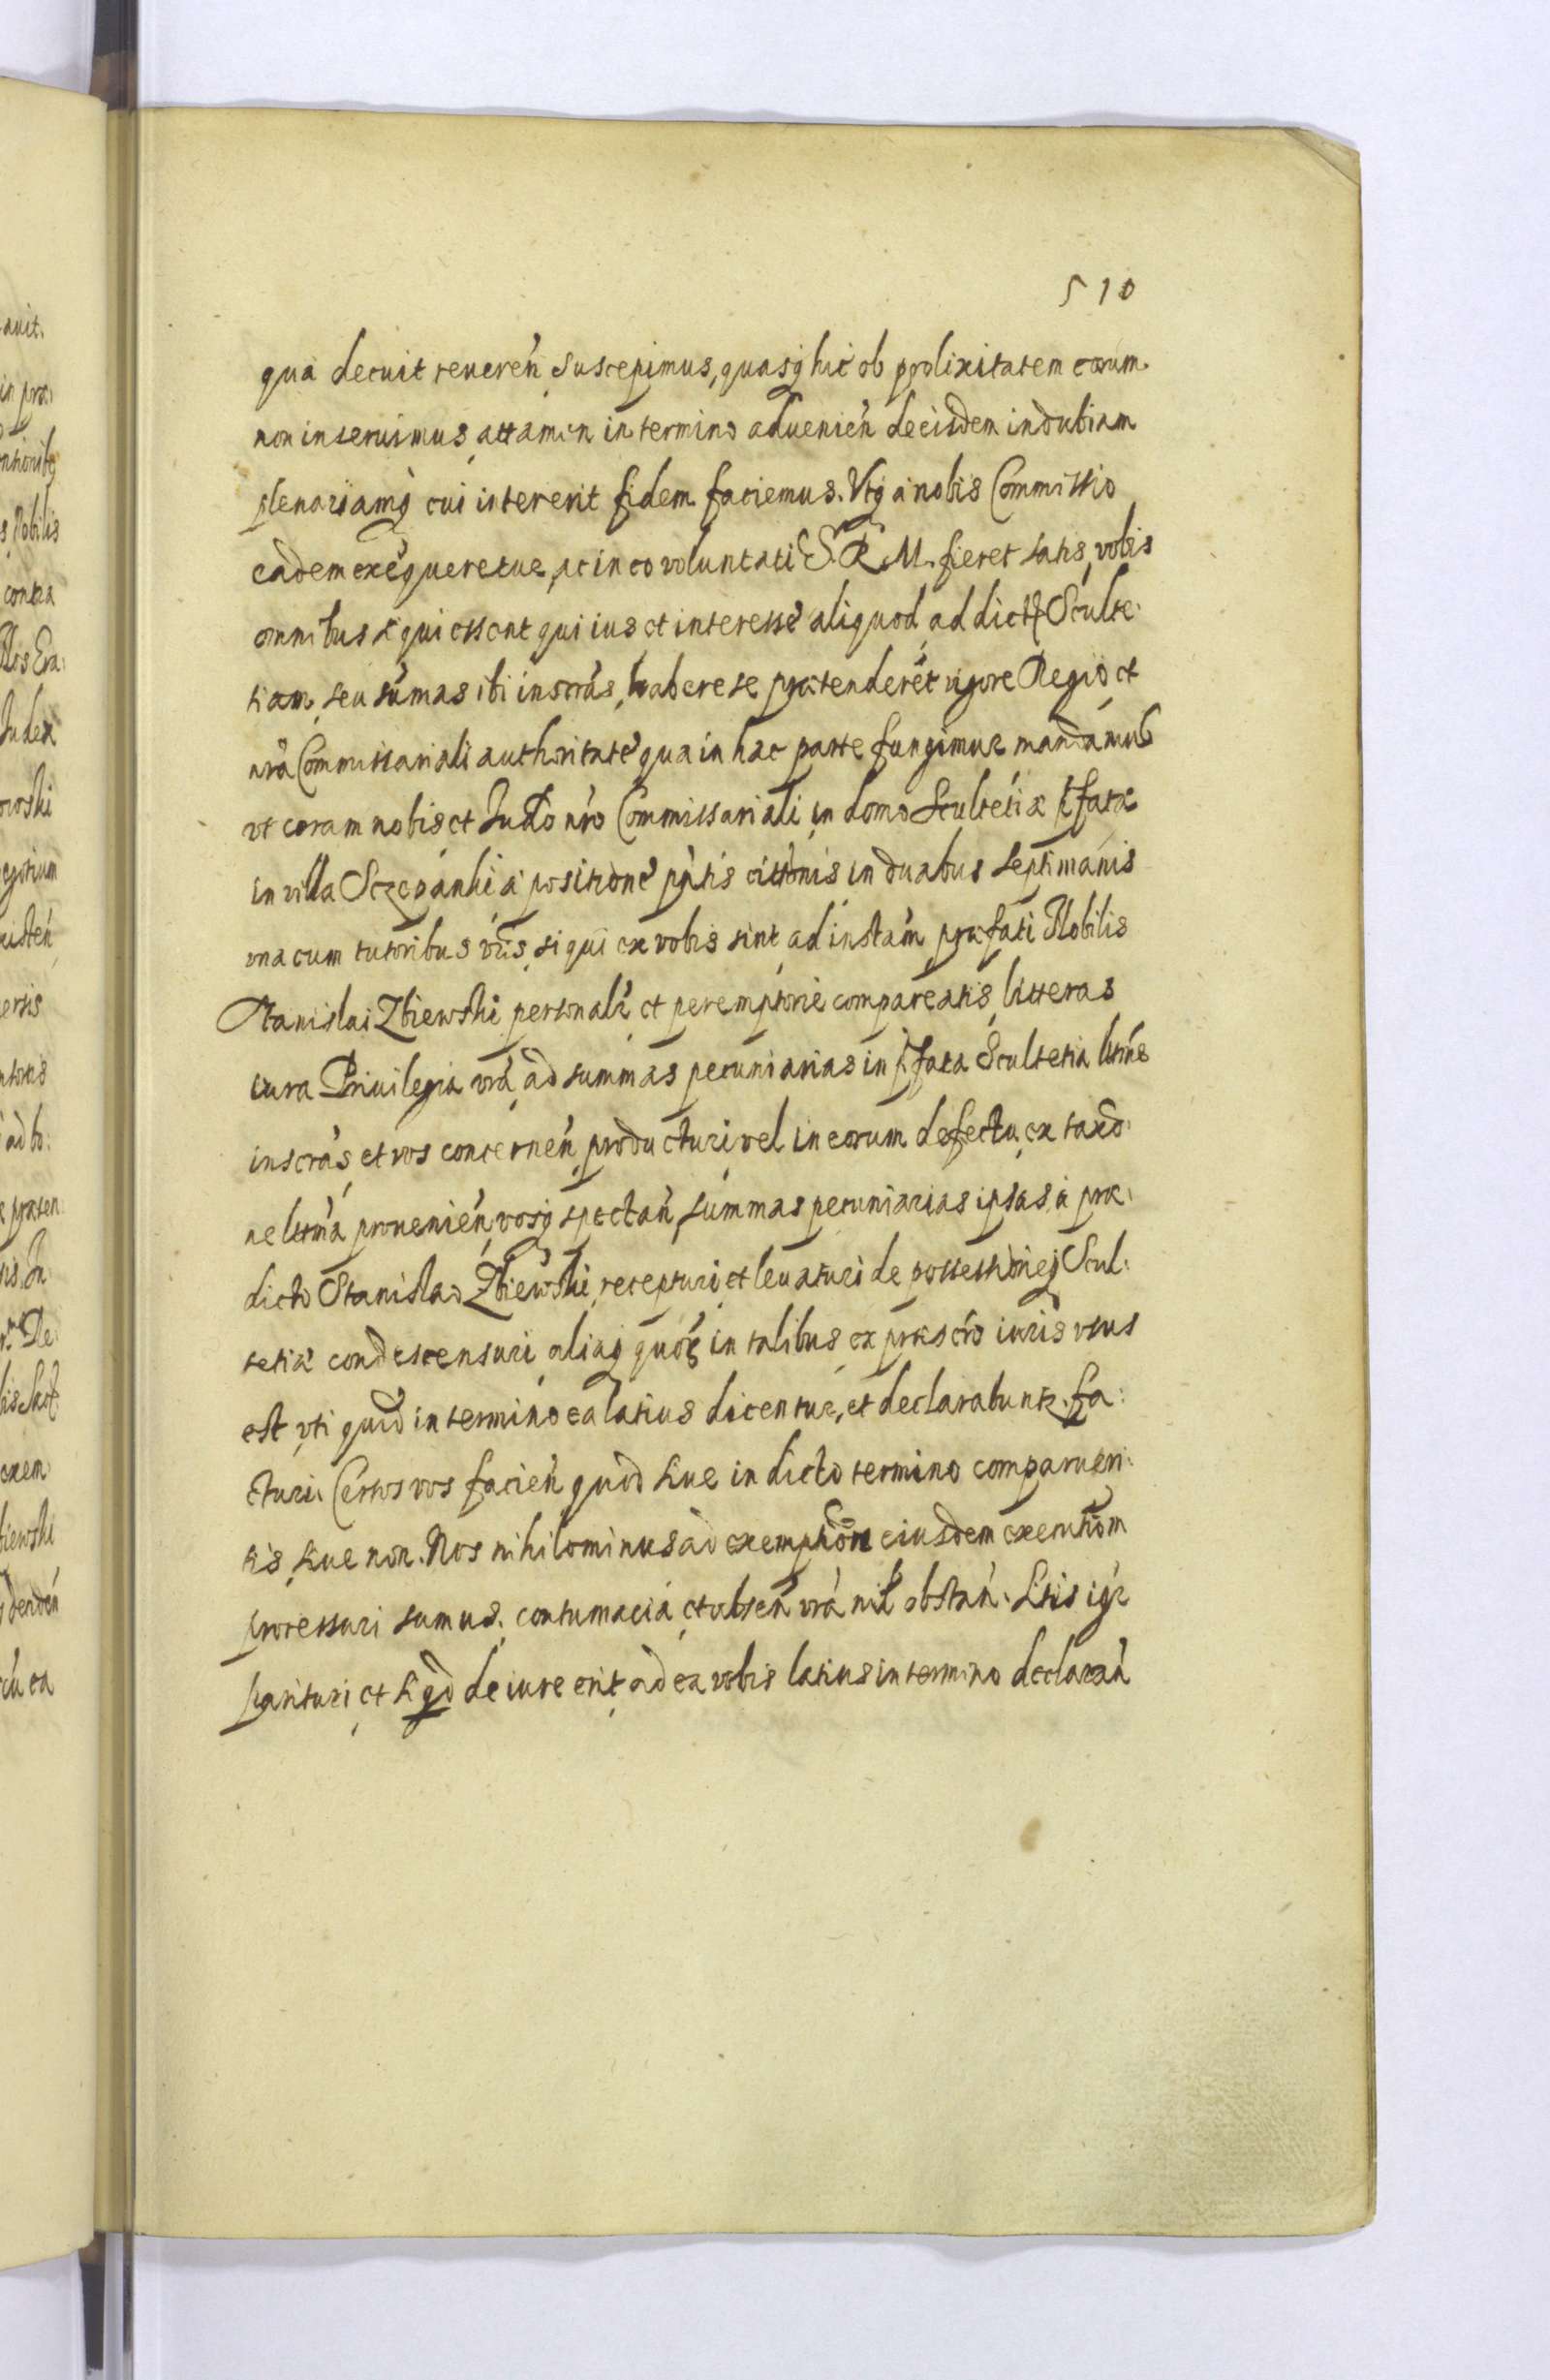 510
qua decuit reveren̄ suscepimus, quasq́ hic ob prolixitatem earum
non inseruimus, attamen in termino advenien̄ de eisdem indubiam
plenariamq́ cui intererit fidem faciemus. Vtq́ a nobis Commissio
eadem exequeretur, ac in eo voluntati S. R. M. fieret satis, vobis
omnibus si qui essent qui ius et interesse aliquod ad dictā Sculte:
tiam, seu sūmas ibi inscr̄as, habere se prætenderēt vigore Regio et
nr̄a Commissariali authoritate qua in hac parte fungimur mandamus
vt coram nobis et Iud̄o nr̄o Commissariali in domo Scultetiæ p̄fatæ
in villa Sczepanki a positione pn̄tis citt̄onis in duabus septimanis
vna cum tutoribus vr̄is, si qui ex vobis sint, ad instan̄ præfati Nobilis
Stanislai Zbiewski personalr̄ et peremptorie compareatis, litteras
iura Privilegia vr̄a, ad summas pecuniarias in p̄fata Scultetia litt̄me
inscr̄as, et vos concernen̄ producturi, vel in eorum defectu, ex taxd̄o
ne litt̄ma provenien̄, vosq́ spectan̄, summas pecuniarias ipsas, a præ:
dicto Stanislao Zbiewski, recepturi, et levaturi de possessioneq́ Scul:
tetiæ condescensuri, aliaq́ quor̄ in talibus ex præscr̄o iuris vsus
est, vti quid in termino ea latius dicentur, et declarabuntr. fa:
cturi. Certos vos facien̄ quod sive in dicto termino comparueri:
tis, sive non. Nos nihilominus ad exemptiōn̄e eiusdem executiōm
processuri sumus. contumacia, et absen̄ vr̄a nil obstan̄. Litis igr̄
parituri, et si qd̄ de iure erit, ad ea vobis latius in termino declaran̄